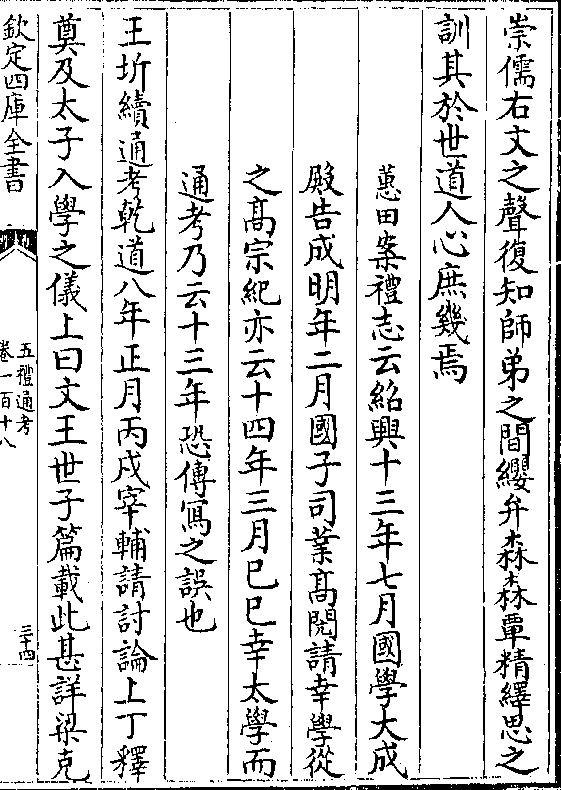 崇儒右文之聲復知師弟之間纓弁森森覃精繹思之
訓其於世道人心庶幾焉
蕙田案禮志云紹興十三年七月國學大成
殿告成明年二月國子司業髙閱請幸學從
之髙宗紀亦云十四年三月已已幸太學而
通考乃云十三年恐傳寫之誤也
王圻續通考乾道八年正月丙戌宰輔請討論上丁釋
奠及太子入學之儀上曰文王世子篇載此甚詳梁克
欽定四庫全書
五禮通考
卷一百十八
三十四